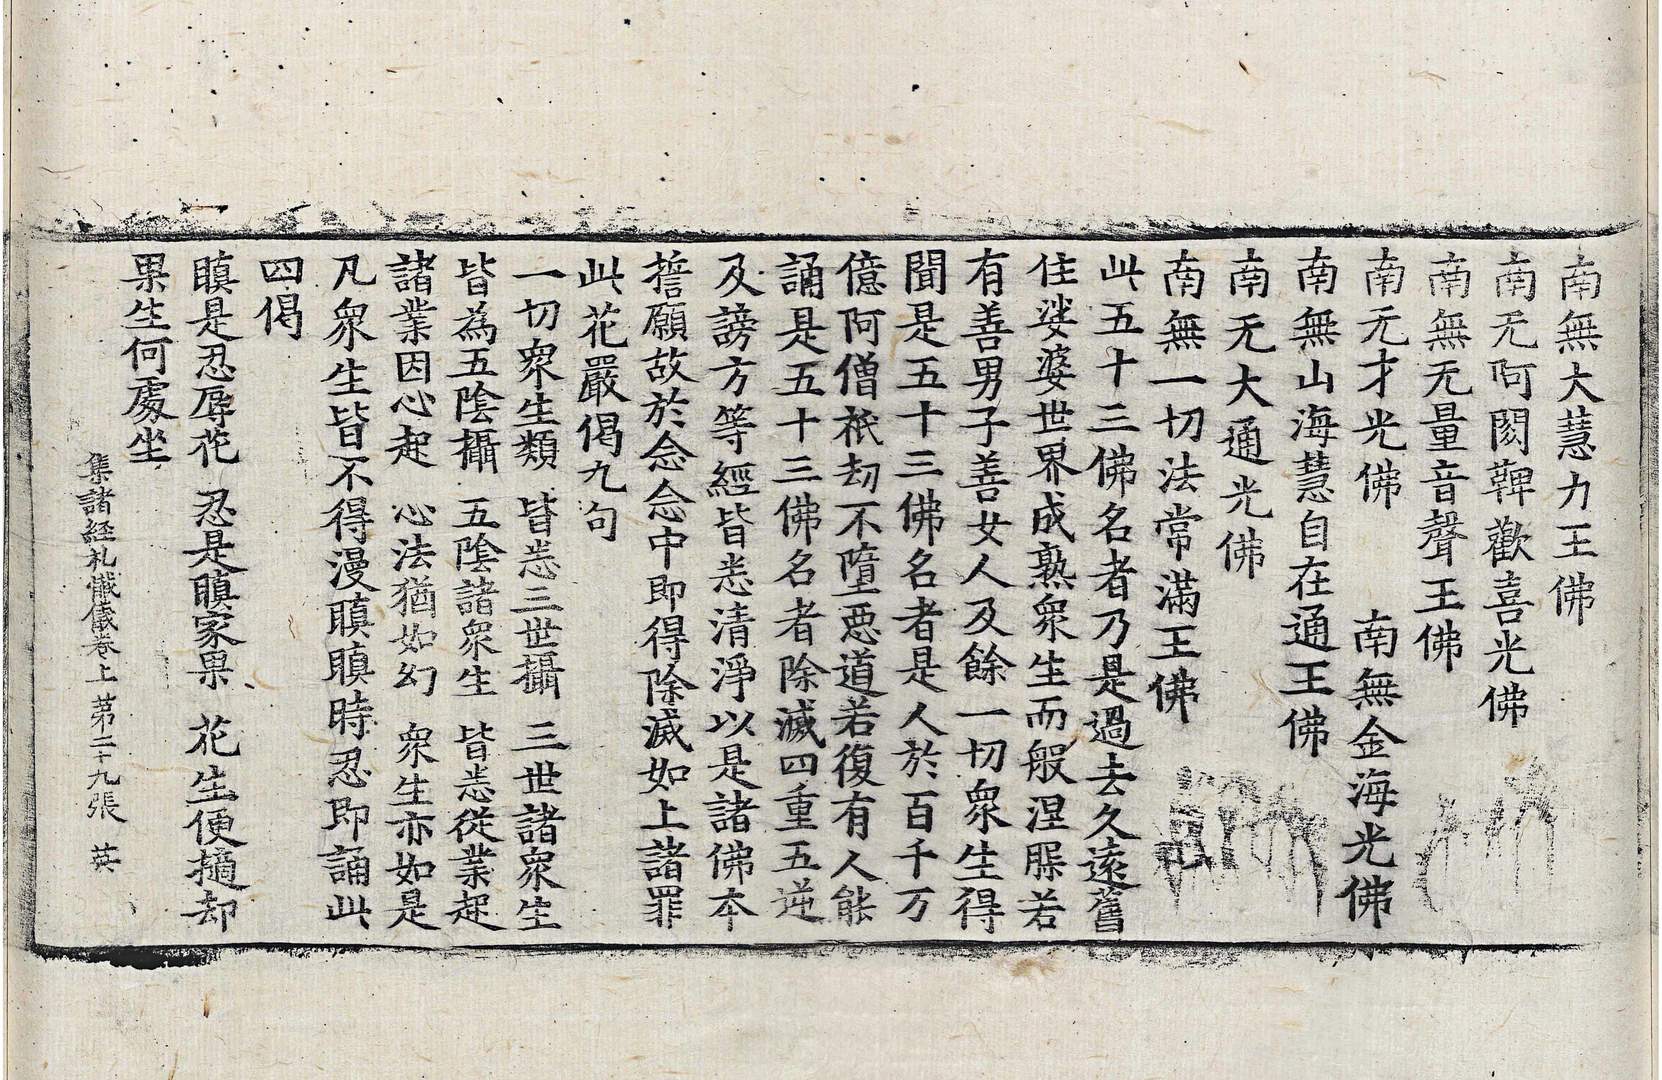 南無大慧力王佛
南无阿閦鞞歡喜光佛
南無无量音聲王佛
南无才光佛　南無金海光佛
南無山海慧自在通王佛
南无大通光佛
南無一切法常滿王佛
此五十三佛名者乃是過去久遠舊
住娑婆世界成熟衆生而般涅槃若
有善男子善女人及餘一切衆生得
聞是五十三佛名者是人於百千万
億阿僧祇劫不墮惡道若復有人能
誦是五十三佛名者除滅四重五逆
及謗方等經皆悉清淨以是諸佛本
誓願故於念念中即得除滅如上諸罪
此花嚴偈九句
一切衆生類　皆悉三世攝　三世諸衆生
皆為五陰攝　五陰諸衆生　皆悉從業起
諸業因心起　心法猶如幻　衆生亦如是
凡衆生皆不得漫瞋瞋時忍即誦此
四偈
瞋是忍辱花　忍是瞋家果　花生便擿却
果生何處坐
集諸經礼懺儀卷上　第二十九張　英